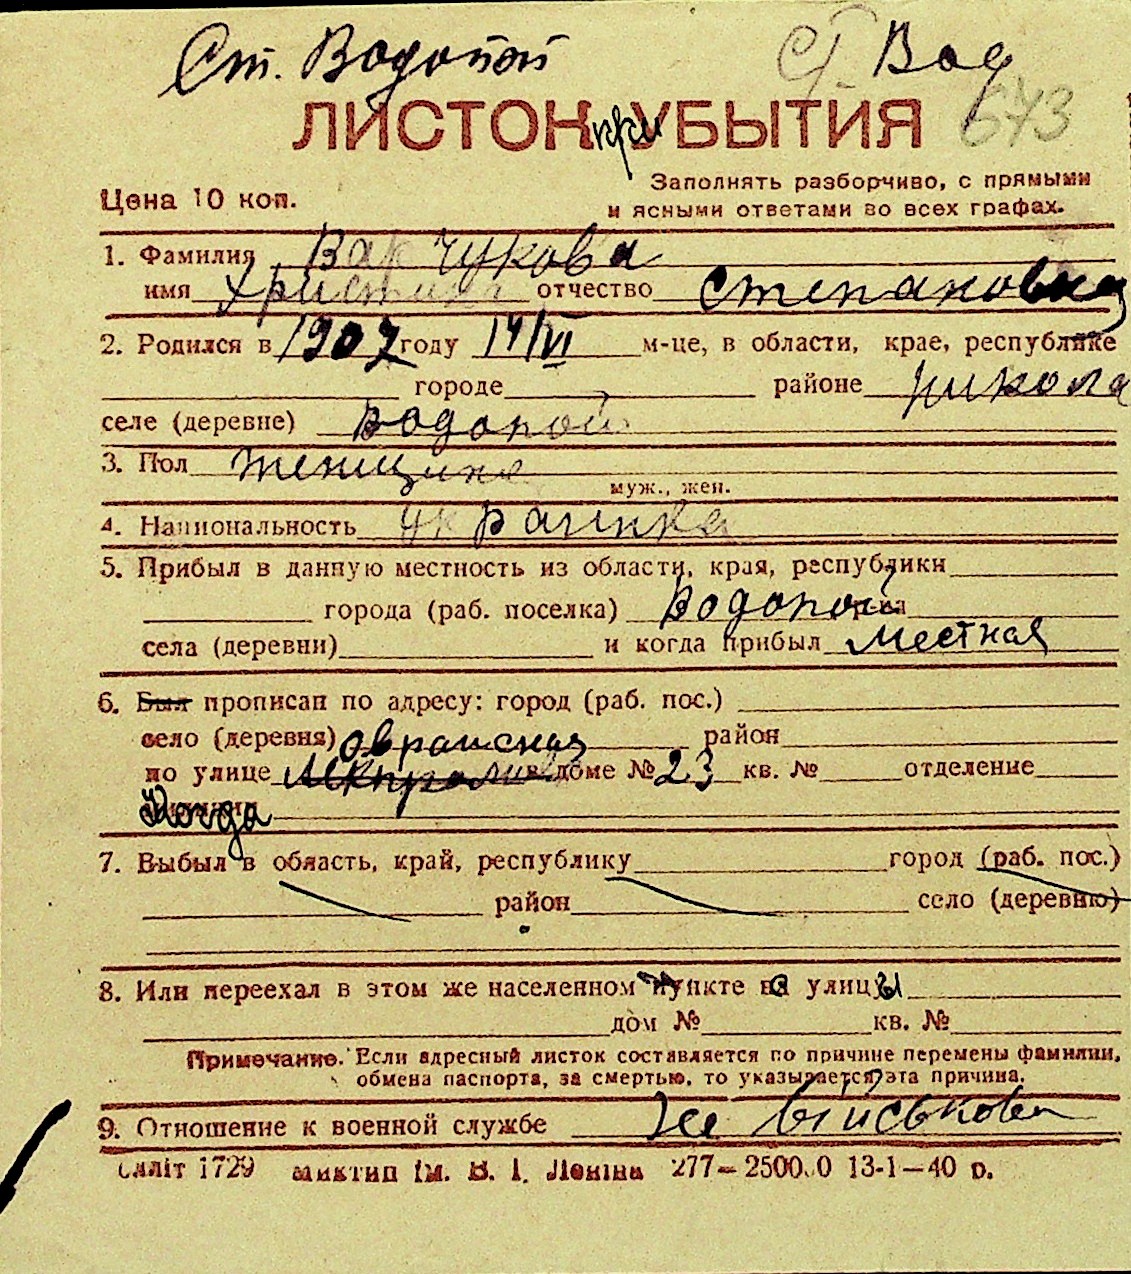 Ст. Водопой Ст. Вод
ЛИСТОК при УБЫТИЯ 673
Цена 10 коп.
Заполнять разборчиво, с прямыми
и ясными ответами во всех графах.
1. Фамилия Варчукова
имя Христина отчество Степановна
2. Родился в 1907 году 14/VI м-це, в области, крае, республике
городе районе Никола
селе (деревне) Водопой
3. Пол женщина
муж., жен.
4. Национальность украинка
5. Прибыл в данную местность из области, края, республики
города (раб. поселка) Водопой
села (деревни) и когда прибыл местная
6. Был прописан по адресу: город (раб. пос.)
село (деревня) район
по улице Овражная в доме № 23 кв. № отделение
Когда
7. Выбыл в область, край, республику город (раб. пос.)
район село (деревню)
8. Или переехал в этом же населенном пункте с улицы
дом № кв. №
Примечание. Если адресный листок составляется по причине перемены фамилии,
обмена паспорта, за смертью, то указывается эта причина.
9. Отношение к военной службе Не військова
1729 ім. В. І. Леніна 277—2500.0 13-1—40 р.